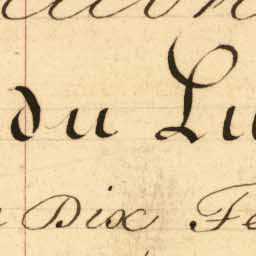 du Lu
Dix Fe